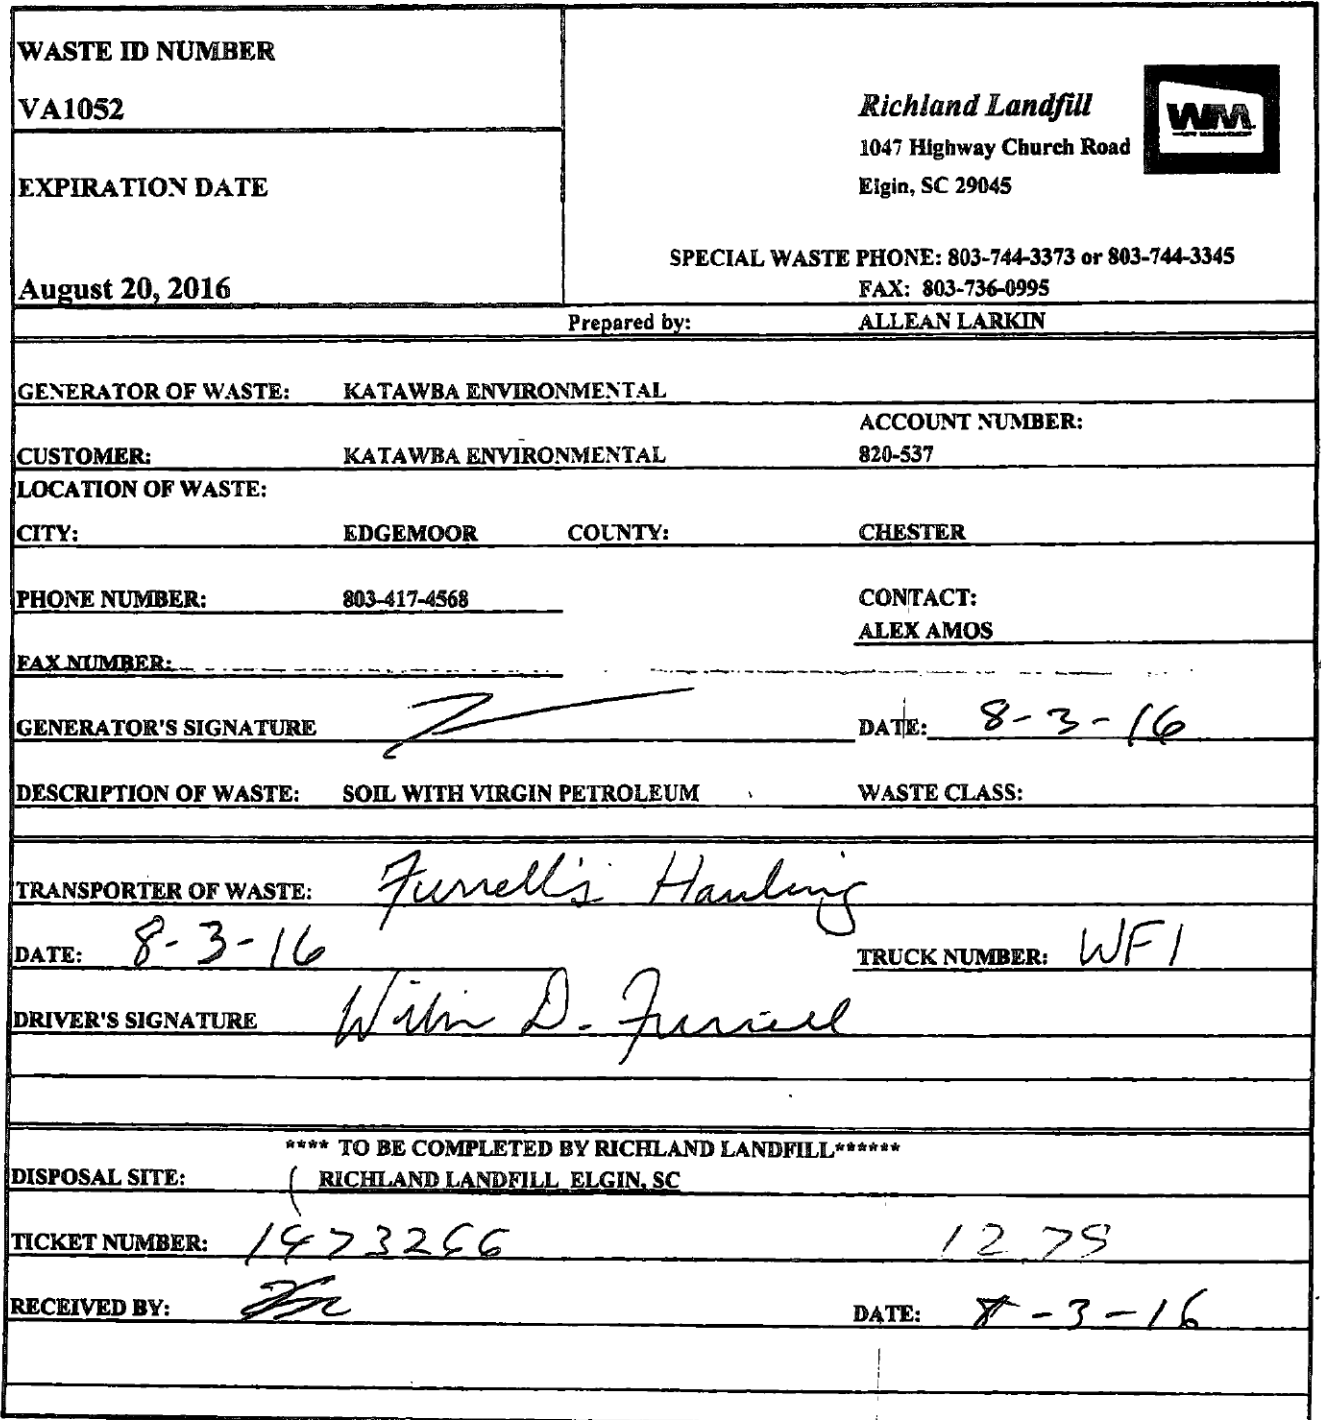 WASTE ID NUMBER
VA1052
EXPIRATION DATE
August 20, 2016
Richland Landfill
WM
1047 Highway Church Road
Elgin, SC 29045
SPECIAL WASTE PHONE: 803-744-3373 or 803-744-3345
FAX: 803-736-0995
Prepared by: ALLEAN LARKIN
GENERATOR OF WASTE: KATAWBA ENVIRONMENTAL
ACCOUNT NUMBER:
CUSTOMER: KATAWBA ENVIRONMENTAL 820-537
LOCATION OF WASTE:
CITY: EDGEMOOR COUNTY: CHESTER
PHONE NUMBER: 803-417-4568 CONTACT:
ALEX AMOS
FAX NUMBER:
GENERATOR'S SIGNATURE DATE: 8-3-16
DESCRIPTION OF WASTE: SOIL WITH VIRGIN PETROLEUM WASTE CLASS:
TRANSPORTER OF WASTE: Hauling
DATE: 8-3-16 TRUCK NUMBER: WF1
DRIVER'S SIGNATURE D.
**** TO BE COMPLETED BY RICHLAND LANDFILL******
DISPOSAL SITE: RICHLAND LANDFILL ELGIN, SC
TICKET NUMBER:
RECEIVED BY: DATE: 8-3-16